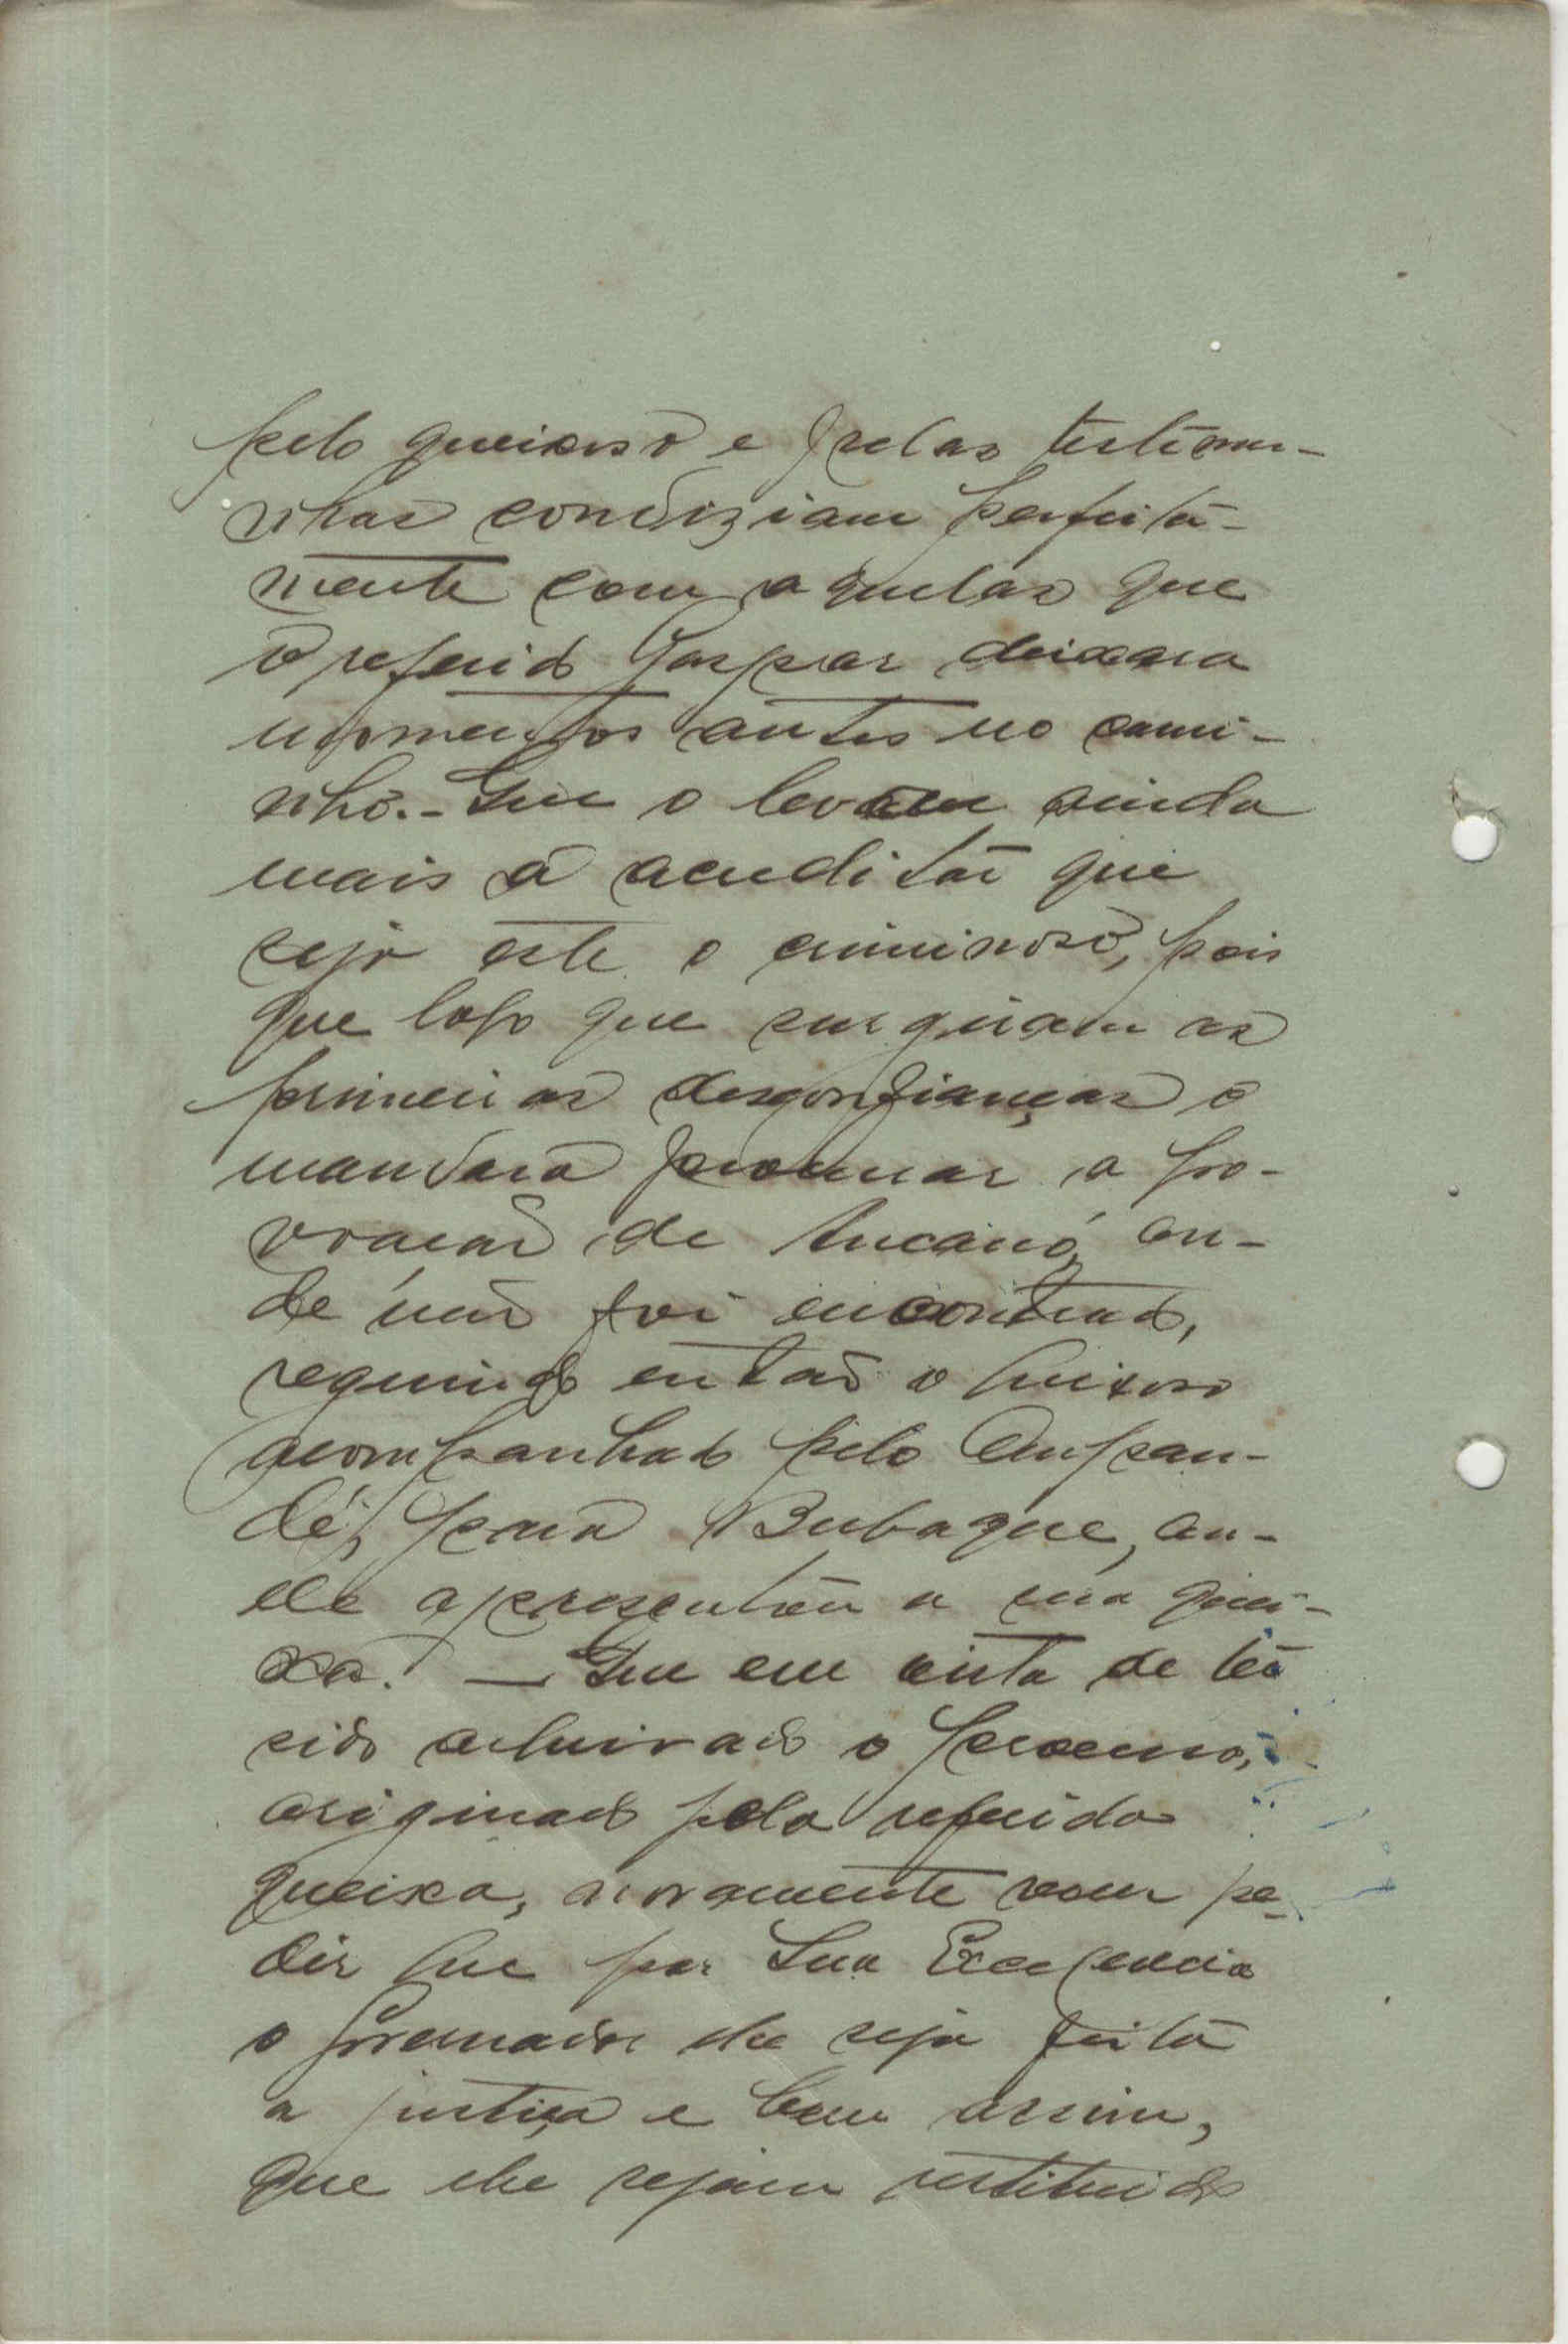 pelo queixoso e pelas testemu-
nhas condiziam perfeita-
mente com aquelas que
o referido Gaspar deixara
momentos antes no cami-
nho.- Que o levam ainda
mais a acreditar que
seja este o criminoso, pois
que logo que surgiram as
primeiras desconfianças o
mandara procurar a po-
voação de Ancanó, on-
de não foi encontrado,
seguindo então o queixoso
acompanhado pelo Ampan-
dé, para Bubaque, on-
de apresentou a sua quei-
xa. — Que em vista de ter
sido arquivado o processo,
originado pela referida
queixa, novamente vem pe-
dir que por Sua Excelencia
o Governador lhe seja feita
a justiça e bem assim,
que lhe sejam restituidos